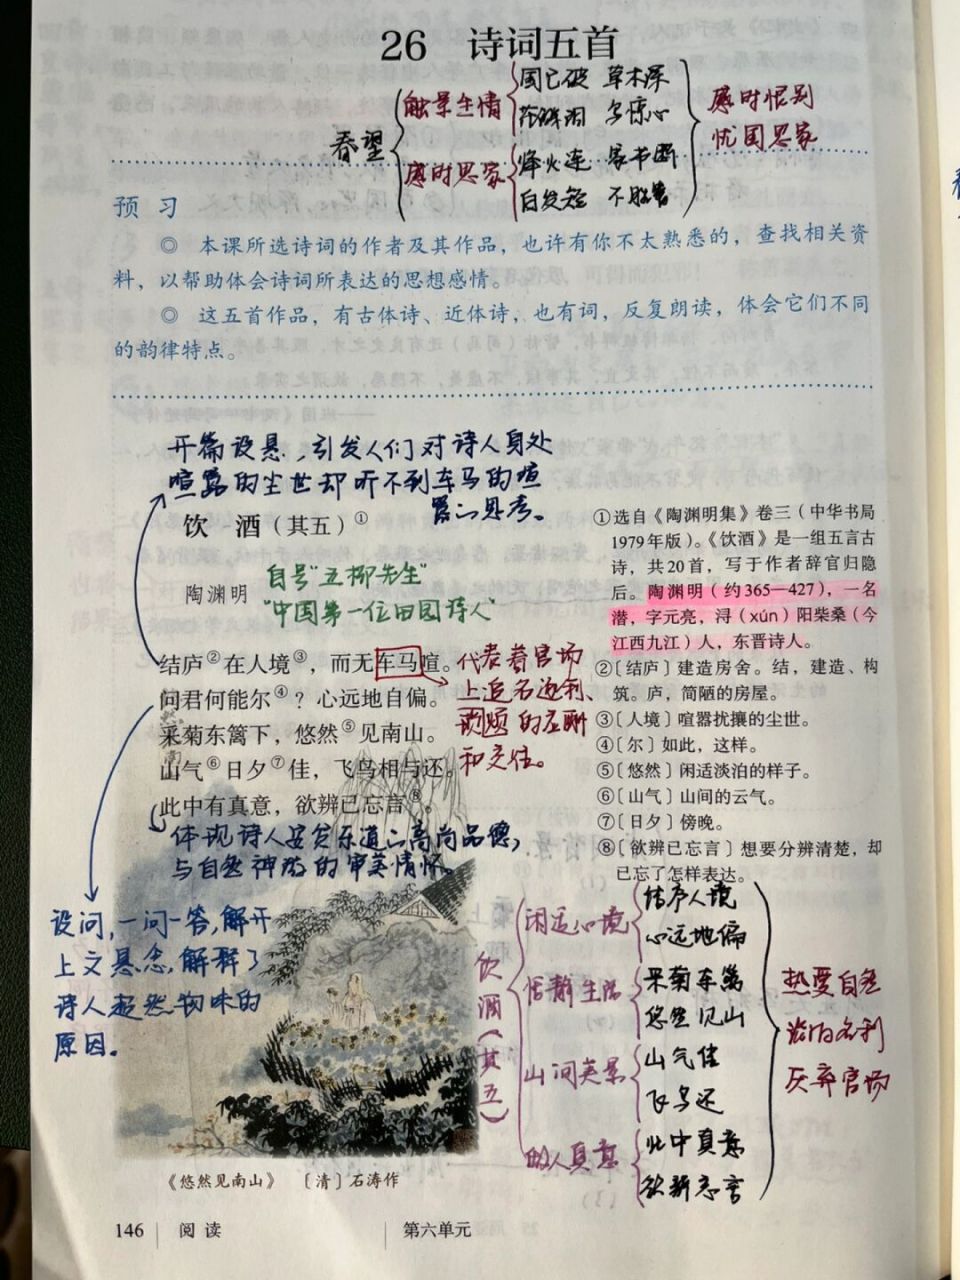 26 诗词五首
春望
触景生情
感时思家
国已破 草木深
烽火连 家书断
白发短 不胜簪
感时恨别
忧国思家
预 习
◎ 本课所选诗词的作者及其作品，也许有你不太熟悉的，查找相关资
料，以帮助体会诗词所表达的思想感情。
◎ 这五首作品，有古体诗、近体诗，也有词，反复朗读，体会它们不同
的韵律特点。
开篇设悬，引发人们对诗人身处
喧嚣的尘世却听不到车马的喧
嚣的思考。
饮 酒（其五）①
陶渊明
自号“五柳先生”
“中国第一位田园诗人”
结庐②在人境③，而无车马喧。
问君何能尔④？心远地自偏。
采菊东篱下，悠然⑤见南山。
山气⑥日夕⑦佳，飞鸟相与还。
此中有真意，欲辨已忘言⑧。
代表着官场
上追名逐利、
的应酬
和交往。
体现诗人安贫乐道的高尚品德，
与自然神游的审美情怀。
设问，一问一答，解开
上文悬念，解释了
诗人超然物外的
原因。
①选自《陶渊明集》卷三（中华书局
1979年版）。《饮酒》是一组五言古
诗，共20首，写于作者辞官归隐
后。陶渊明（约365—427），一名
潜，字元亮，浔（xún）阳柴桑（今
江西九江）人，东晋诗人。
②〔结庐〕建造房舍。结，建造、构
筑。庐，简陋的房屋。
③〔人境〕喧嚣扰攘的尘世。
④〔尔〕如此，这样。
⑤〔悠然〕闲适淡泊的样子。
⑥〔山气〕山间的云气。
⑦〔日夕〕傍晚。
⑧〔欲辨已忘言〕想要分辨清楚，却
已忘了怎样表达。
饮酒（其五）
闲适心境
恬静生活
山间美景
人真意
结庐人境
心远地偏
采菊东篱
悠然见山
山气佳
飞鸟还
此中真意
欲辨忘言
热爱自然
淡泊名利
厌弃官场
《悠然见南山》 〔清〕石涛作
146 阅 读 第六单元